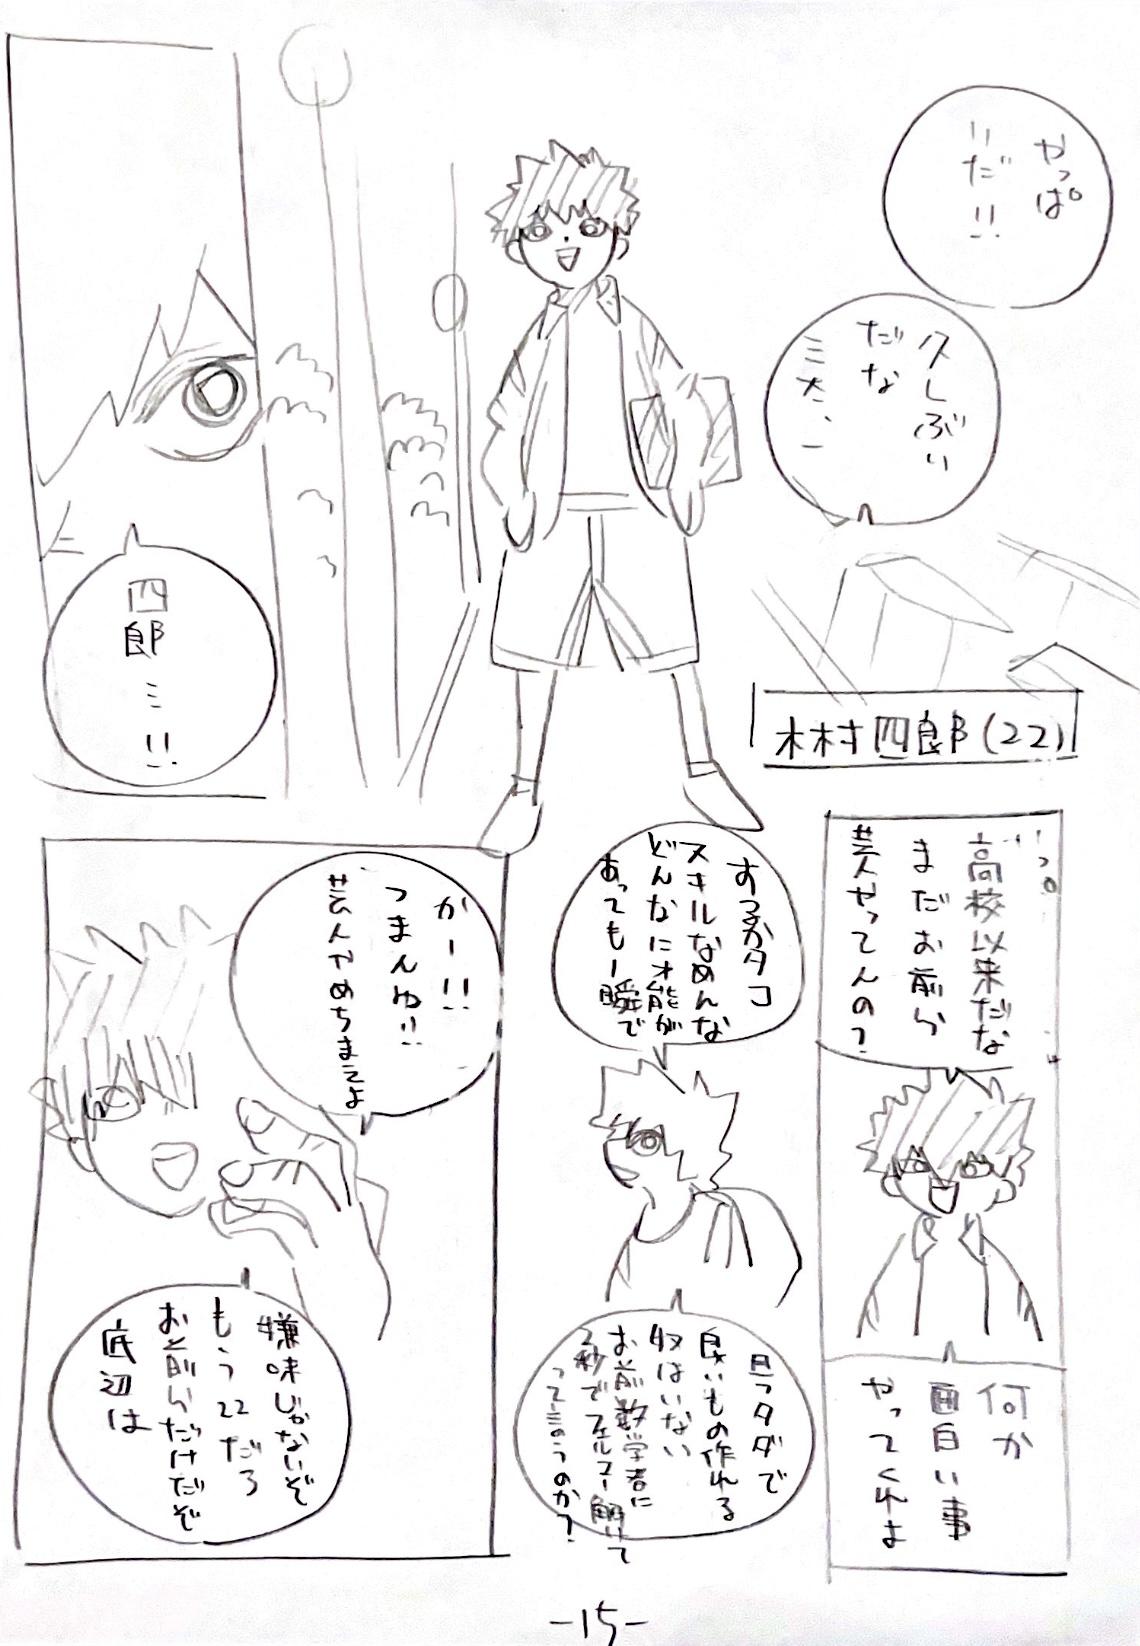 やっぱ
リだ!!
久しぶり
だな
ミ大、一
四
郎ミ!!
木村四郎(22)
高校以来だな
まだお前ら
芸人やってんの?
何か
面白い事
やってくれよ
するかタコ
スキルなめんな
どんなに才能が
あっても一瞬で
且つタダで
良いもの作れる
奴はいない
お前数学者に
2秒でフェルマー解けて
って言うのか?
かー!!
つまんね!!
芸人やめちまえよ
嫌味じゃないぞ
もう22だろ
お前らだけだぞ
底辺は
-15-